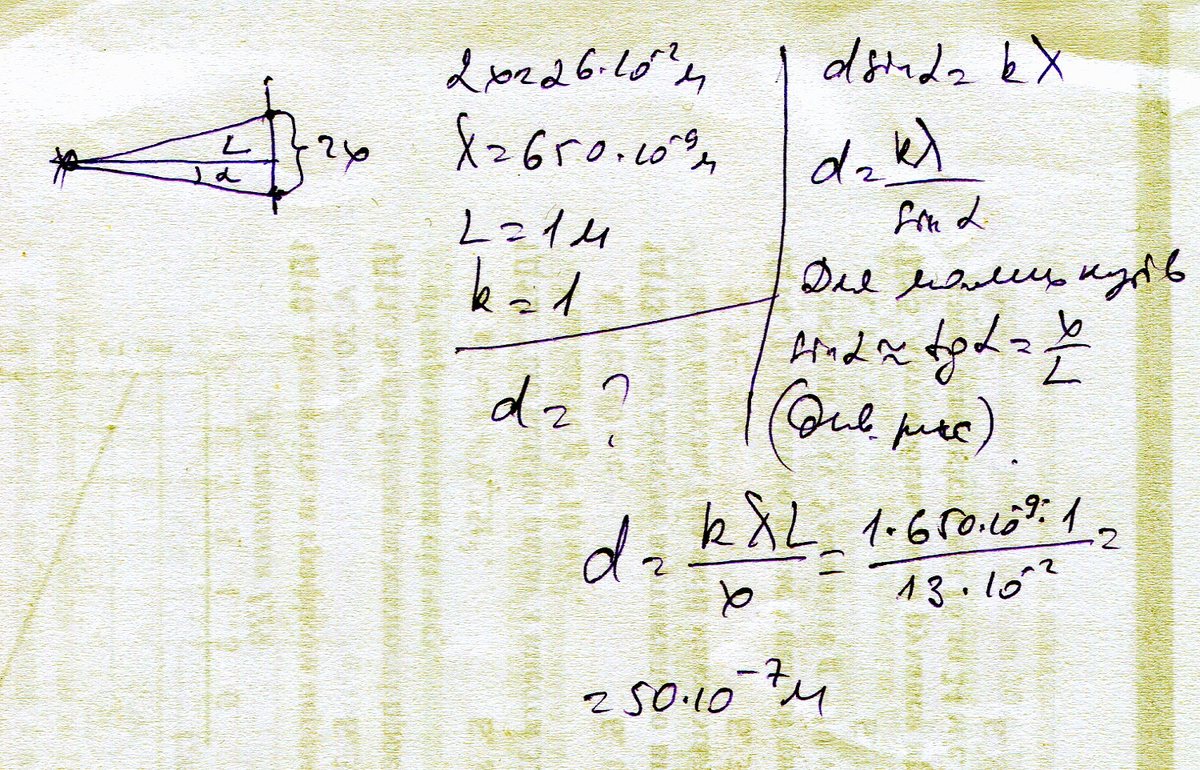 L
α
2x
2x=26·10⁻² м
λ=650·10⁻⁹ м
L=1 м
k=1
d=?
d sin α = kλ
d = kλ / sin α
Для малих кутів
sin α ≈ tg α = x / L
(Див. рис)
d = kλL / x = 1·650·10⁻⁹·1 / 13·10⁻² =
=50·10⁻⁷ м